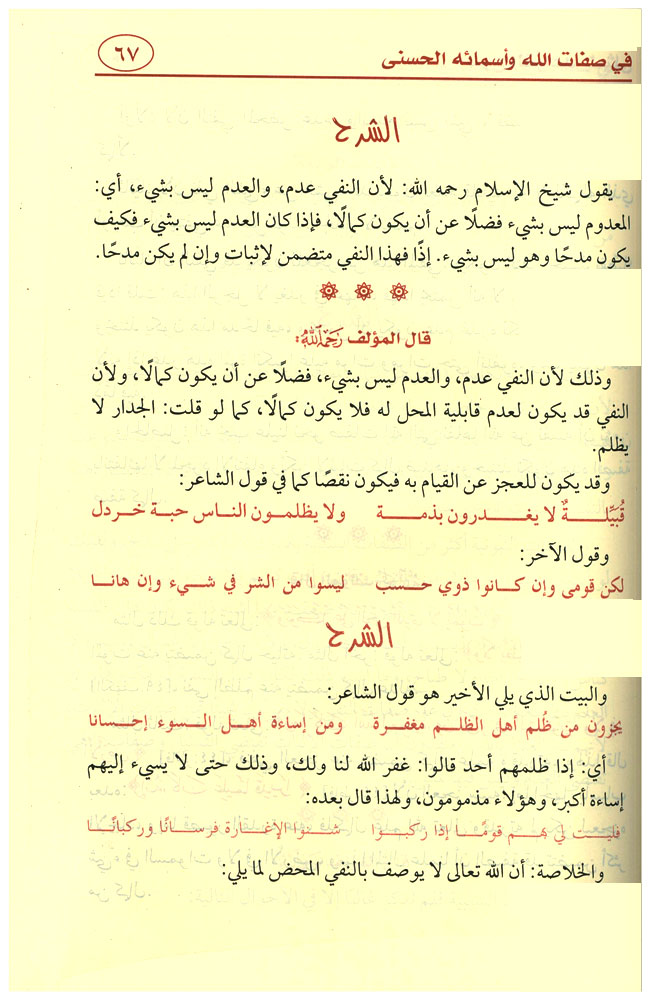 في صفات الله وأسمائه الحسنى ٦٧
الشرح
يقول شيخ الإسلام رحمه الله: لأن النفي عدم، والعدم ليس بشيء، أي:
المعدوم ليس بشيء فضلًا عن أن يكون كمالًا، فإذا كان العدم ليس بشيء فكيف
يكون مدحًا وهو ليس بشيء. إذًا فهذا النفي متضمن لإثبات وإن لم يكن مدحًا.
قال المؤلف رَحِمَهُ اللهُ:
وذلك لأن النفي عدم، والعدم ليس بشيء، فضلًا عن أن يكون كمالًا، ولأن
النفي قد يكون لعدم قابلية المحل له فلا يكون كمالًا، كما لو قلت: الجدار لا
يظلم.
وقد يكون للعجز عن القيام به فيكون نقصًا كما في قول الشاعر:
قُبَيِّلـــــةٌ لا يغـــــدرون بذمـــــة ولا يظلمـــون النـــاس حبـــة خـــردل
وقول الآخر:
لكن قومى وإن كـــانوا ذوي حســـب ليســـوا من الشـــر في شـــيء وإن هانـــا
الشرح
والبيت الذي يلي الأخير هو قول الشاعر:
يجزون من ظُلم أهل الظلـــم مغفـــرة ومن إساءة أهـــل الـــسوء إحـــسانا
أي: إذا ظلمهم أحد قالوا: غفر الله لنا ولك، وذلك حتى لا يسيء إليهم
إساءة أكبر، وهؤلاء مذمومون، ولهذا قال بعده:
فليـــت لي بهـــم قومًـــا إذا ركبـــوا شـــنوا الإغـــارة فرســـانًا وركبانًـــا
والخلاصة: أن الله تعالى لا يوصف بالنفي المحض لما يلي: